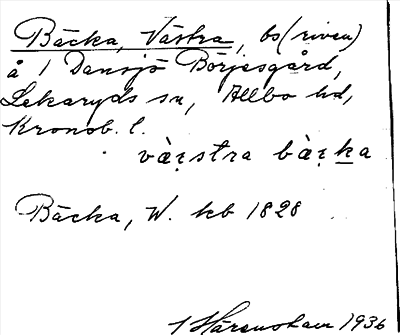 Bäcka, Västra, bs (riven)
å 1 Dansjö Börjesgård,
Lekaryds sn, Allbo hd,
Kronob. l.
vàr̤stra bàr̤ka
Bäcka, W. kb 1828
1936